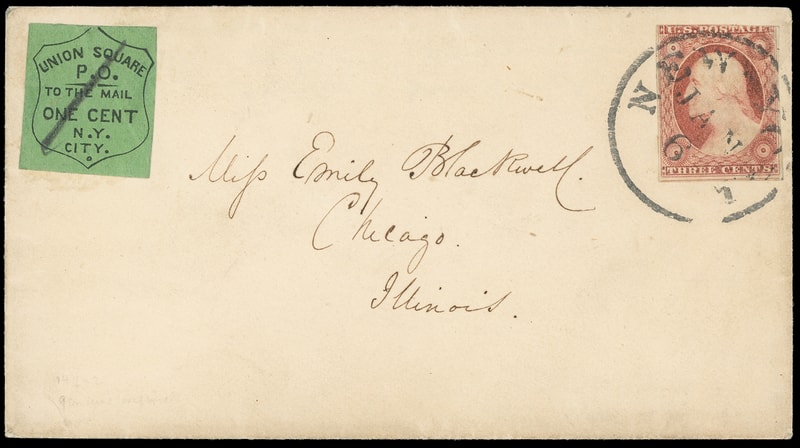 UNION SQUARE
P.O.
TO THE MAIL
ONE CENT
N.Y.
CITY.
U.S. POSTAGE
THREE CENTS
NEW YO
JAN
6
Miss Emily Blackwell.
Chicago.
Illinois.